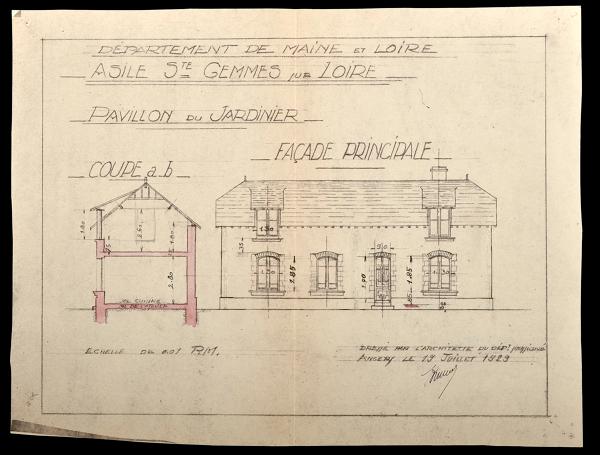 DÉPARTEMENT DE MAINE ET LOIRE
ASILE STE GEMMES SUR LOIRE
PAVILLON DU JARDINIER
COUPE a.b
FAÇADE PRINCIPALE
1.80
2.50
1.80
2.80
SOL CUISINE
1.30
1.30
1.85
90
1.85
1.30
ECHELLE DE 0.01 P.M.
DRESSÉ PAR L'ARCHITECTE DU DÉPT soussigné
ANGERS LE 19 JUILLET 1929